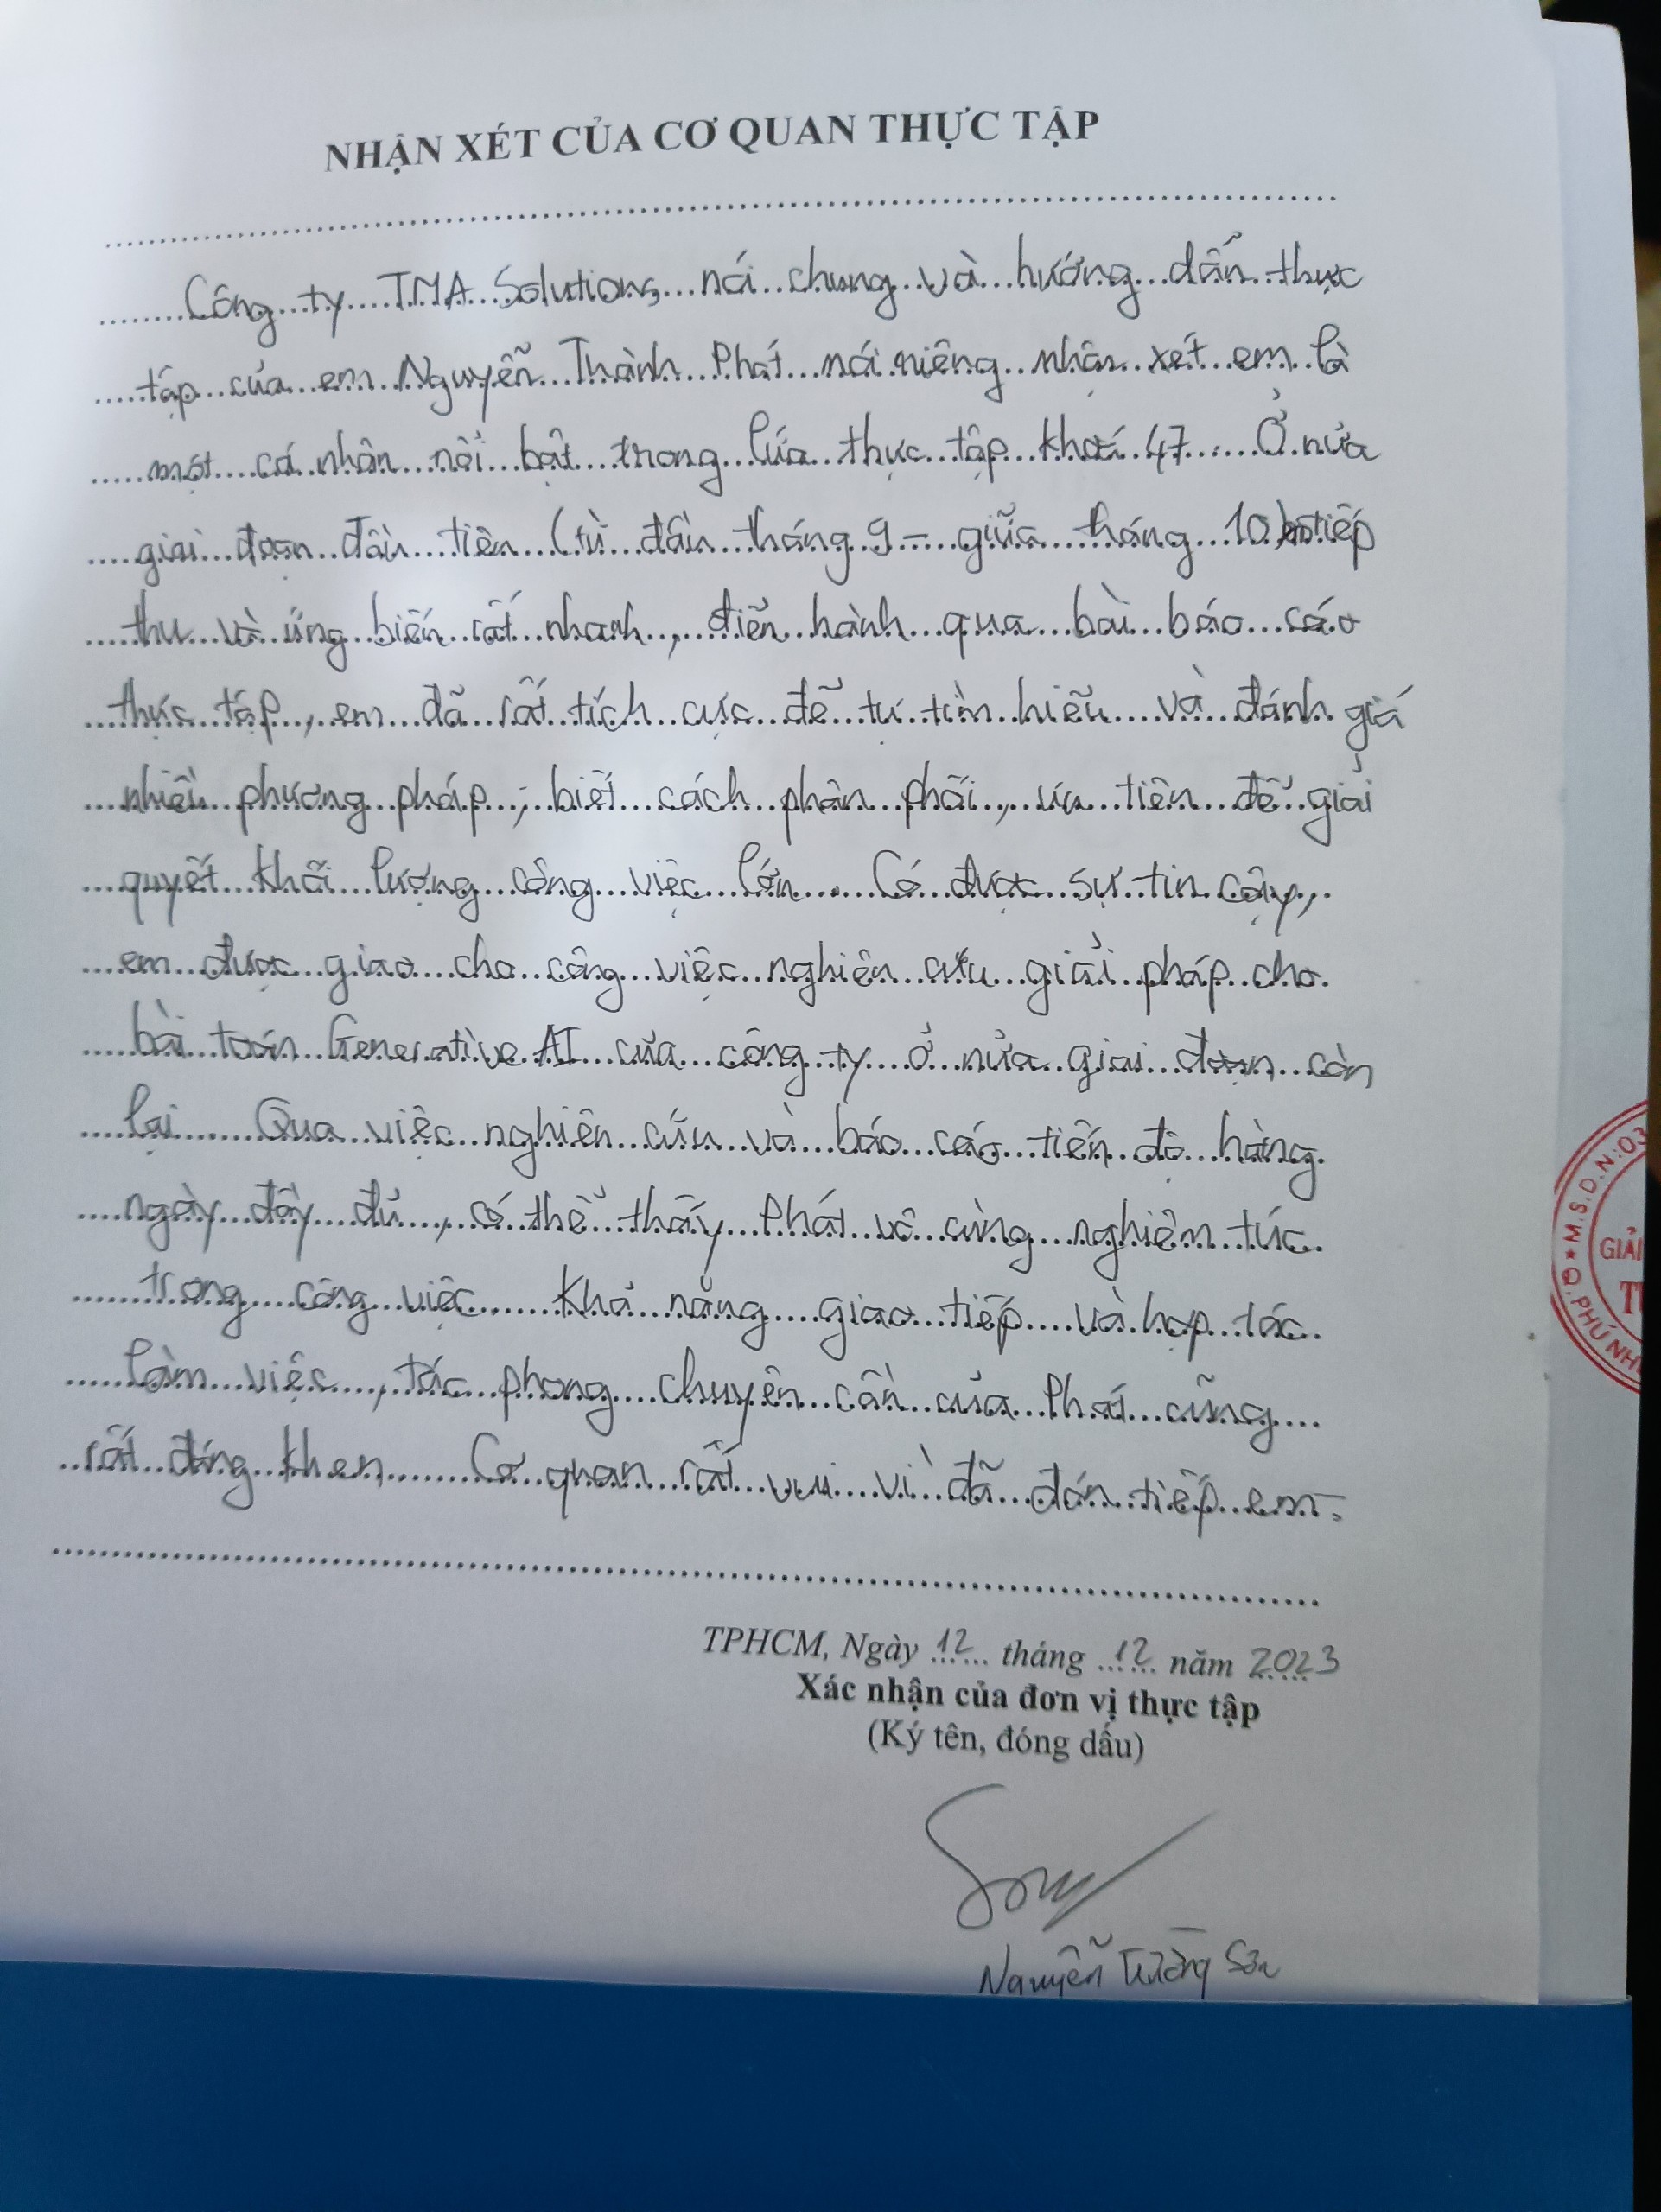 NHẬN XÉT CỦA CƠ QUAN THỰC TẬP
Công ty TMA Solutions nói chung và hướng dẫn thực
tập của em Nguyễn Thành Phát nói riêng nhận xét em là
một cá nhân nổi bật trong lứa thực tập khoá 47. Ở nửa
giai đoạn đầu tiên (từ đầu tháng 9 – giữa tháng 10) tiếp
thu và ứng biến rất nhanh, điển hành qua bài báo cáo
thực tập, em đã rất tích cực để tự tìm hiểu và đánh giá
nhiều phương pháp; biết cách phân phối, ưu tiên để giải
quyết khối lượng công việc lớn. Có được sự tin cậy,
em được giao cho công việc nghiên cứu giải pháp cho
bài toán Generative AI của công ty ở nửa giai đoạn còn
lại. Qua việc nghiên cứu và báo cáo tiến độ hàng
ngày đầy đủ, có thể thấy Phát vô cùng nghiêm túc
trong công việc. Khả năng giao tiếp và hợp tác
làm việc, tác phong chuyên cần của Phát cũng
rất đáng khen. Cơ quan rất vui vì đã đón tiếp em.
TPHCM, Ngày 12 tháng 12 năm 2023
Xác nhận của đơn vị thực tập
(Ký tên, đóng dấu)
Nguyễn Trường Sơn
M.S.D.N:03
GIẢI
Q.PHÚ NH